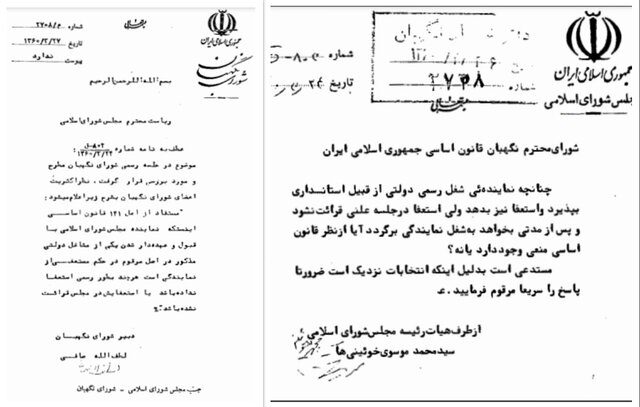 بسمه تعالی
جمهوری اسلامی ایران
شورای نگهبان
شماره ۲۷۰۸/م
تاریخ ۱۳۶۰/۲/۲۷
پیوست ندارد
بسم الله الرحمن الرحیم
ریاست محترم مجلس شورای اسلامی
عطف به نامه شماره
موضوع در جلسه رسمی شورای نگهبان مطرح
و مورد بررسی قرار گرفت، نظر اکثریت
اعضای شورای نگهبان بشرح زیر اعلام میشود:
"مستفاد از اصل ۱۴۱ قانون اساسی
اینستکه نماینده مجلس شورای اسلامی با
قبول و عهده‌دار شدن یکی از مشاغل دولتی
مذکور در اصل مرقوم در حکم مستعفی از
نمایندگی است هرچند بطور رسمی استعفا
نداده باشد یا استعفایش در مجلس قرائت
نشده باشد"
دبیر شورای نگهبان
لطف الله صافی
جنب مجلس شورای اسلامی - شورای نگهبان
جمهوری اسلامی ایران
مجلس شورای اسلامی
شماره
تاریخ
شماره ۲۷۰۸
بسمه تعالی
شورای محترم نگهبان قانون اساسی جمهوری اسلامی ایران
چنانچه نماینده‌ئی شغل رسمی دولتی از قبیل استانداری
بپذیرد واستعفا نیز بدهد ولی استعفا درجلسه علنی قرائت‌نشود
و پس از مدتی بخواهد به‌شغل نمایندگی برگردد آیا ازنظر قانون
اساسی منعی وجوددارد یانه؟
مستدعی است بدلیل اینکه انتخابات نزدیک است ضرورتا
پاسخ را سریعا مرقوم فرمایید.
ازطرف‌هیات رئیسه مجلس شورای اسلامی
سید محمد موسوی خوئینی‌ها